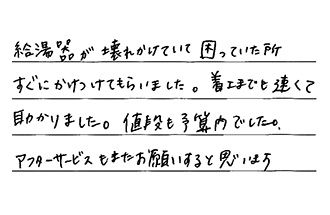 給湯器が壊れかけていて困っていた所
すぐにかけつけてもらいました。着工までも速くて
助かりました。値段も予算内でした。
アフターサービスもまたお願いすると思います